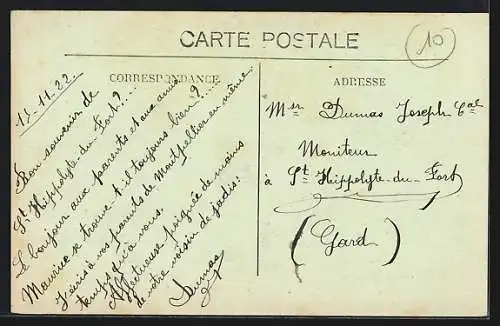 CARTE POSTALE
10
CORRESPONDANCE
11-11-22
Bon souvenir de
St Hippolyte du Fort?...
Le bonjour aux parents et aux amis
Maurice se trouve t-il toujours bien?....
J'écris à vos parents de Montpellier en même
temps qu'à vous.
Affectueuse poignée de mains
de votre voisin de jadis:
Dumas
ADRESSE
Msr Dumas Joseph Cal
Moniteur
à St Hippolyte-du-Fort
(Gard)